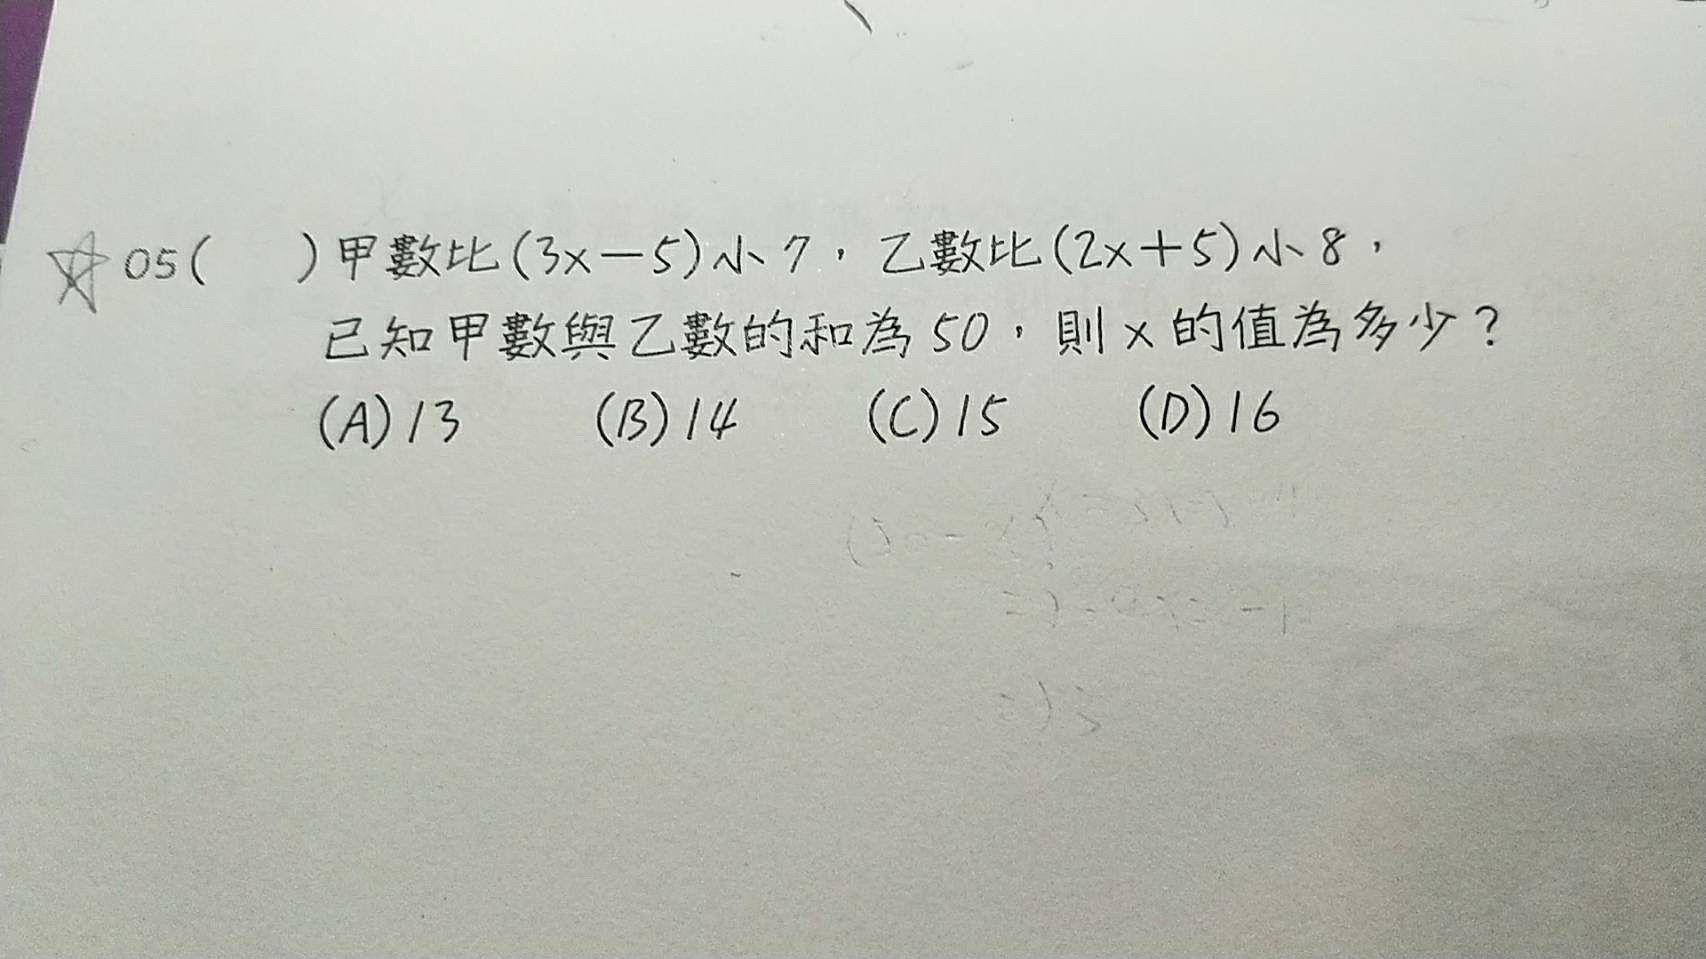 ☆05(　)甲數比(3x－5)小7，乙數比(2x＋5)小8，
已知甲數與乙數的和為50，則x的值為多少？
(A)13　(B)14　(C)15　(D)16